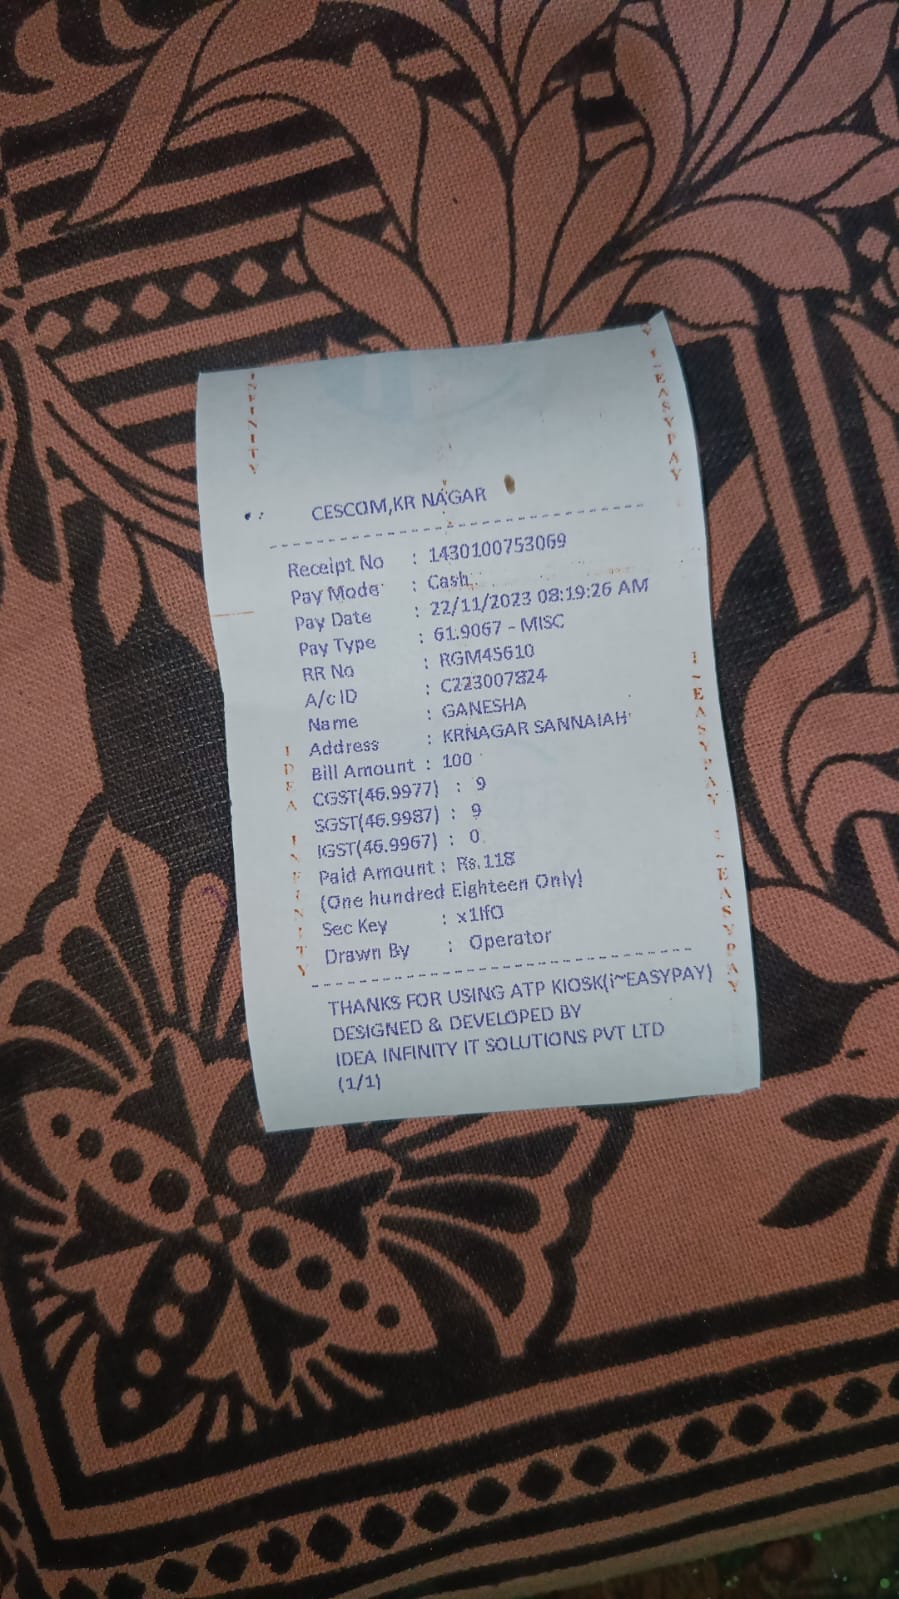 CESCOM,KR NAGAR
Receipt No : 1430100753069
Pay Mode : Cash
Pay Date : 22/11/2023 08:19:26 AM
Pay Type : 61.9067 - MISC
RR No : RGM45610
A/c ID : C223007824
Name : GANESHA
Address : KRNAGAR SANNAIAH
Bill Amount : 100
CGST(46.9977) : 9
SGST(46.9987) : 9
IGST(46.9967) : 0
Paid Amount : Rs.118
(One hundred Eighteen Only)
Sec Key : x1IfO
Drawn By : Operator
THANKS FOR USING ATP KIOSK(i~EASYPAY)
DESIGNED & DEVELOPED BY
IDEA INFINITY IT SOLUTIONS PVT LTD
(1/1)
INFINITY
I~EASYPAY
IDEA INFINITY
I~EASYPAY
I~EASYPAY